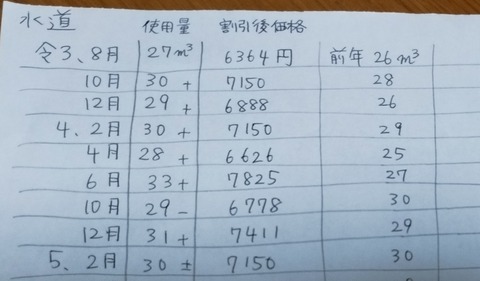 水道 使用量 割引後価格
令3、8月 27m³ 6364円 前年 26m³
10月 30 + 7150 28
12月 29 + 6888 26
4、2月 30 + 7150 29
4月 28 + 6626 25
6月 33 + 7825 27
10月 29 − 6778 30
12月 31 + 7411 29
5、2月 30 ± 7150 30